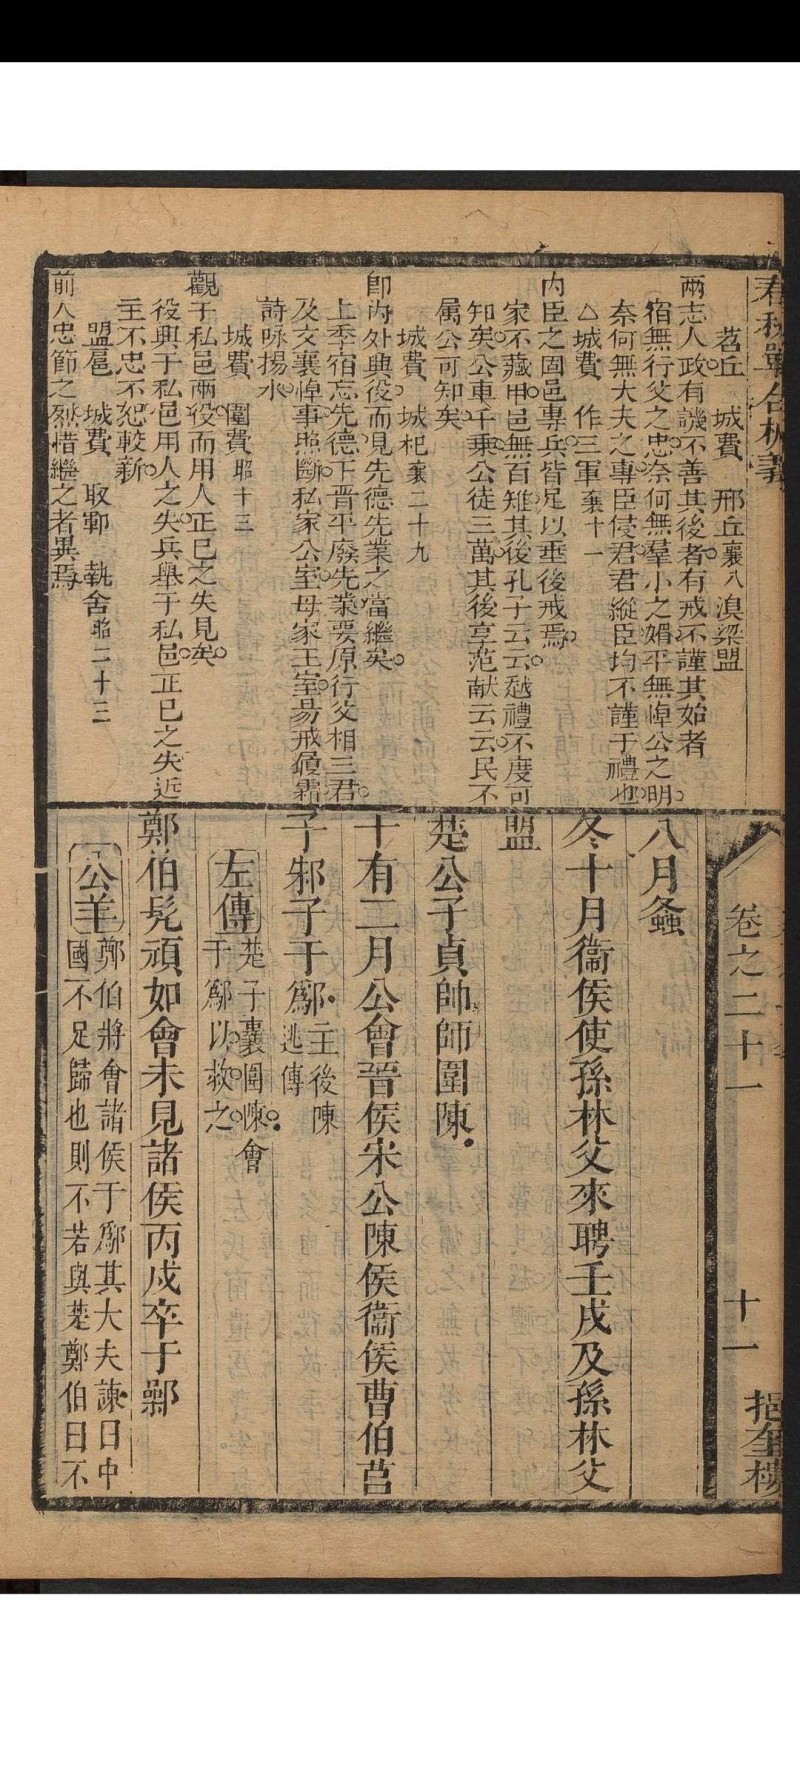 春秋單合析義
卷之二十一
十一
挹奎樓
莒丘　城費　邢丘襄八　湨梁盟
兩志人政有譏不善其後者有戒不謹其始者
宿無行父之忠奈何無羣小之媚平無悼公之明
奈何無大夫之專臣侵君君縱臣均不謹于禮也
△城費　作三軍襄十一
內臣之固邑專兵皆足以垂後戒焉
家不藏甲邑無百雉其後孔子云云越禮不度可
知矣公車千乘公徒三萬其後享范献云云民不
属公可知矣
城費　城杞襄二十九
卽內外興役而見先德先業之當繼矣
上季宿忘先德下晋平廢先業要原行父相三君
及文襄悼事照斷私家公室母家王室易戒履霜
詩咏揚水
城費　圍費昭十三
觀于私邑兩役而用人正巳之失見矣
役興于私邑用人之失兵舉于私邑正巳之失近
主不忠不恕較新
盟扈　城費　取鄆　執舍昭二十三
前人忠節之烈惜繼之者異焉
八月螽
冬十月衞侯使孫林父來聘壬戌及孫林父
盟
楚公子貞帥師圍陳
十有二月公會晉侯宋公陳侯衞侯曹伯莒
子邾子于鄬主後陳
逃傳
左傳 楚子囊圍陳會
于鄬以救之
鄭伯髠頑如會未見諸侯丙戌卒于鄵
公羊 鄭伯將會諸侯于鄬其大夫諫曰中
國不足歸也則不若與楚鄭伯曰不